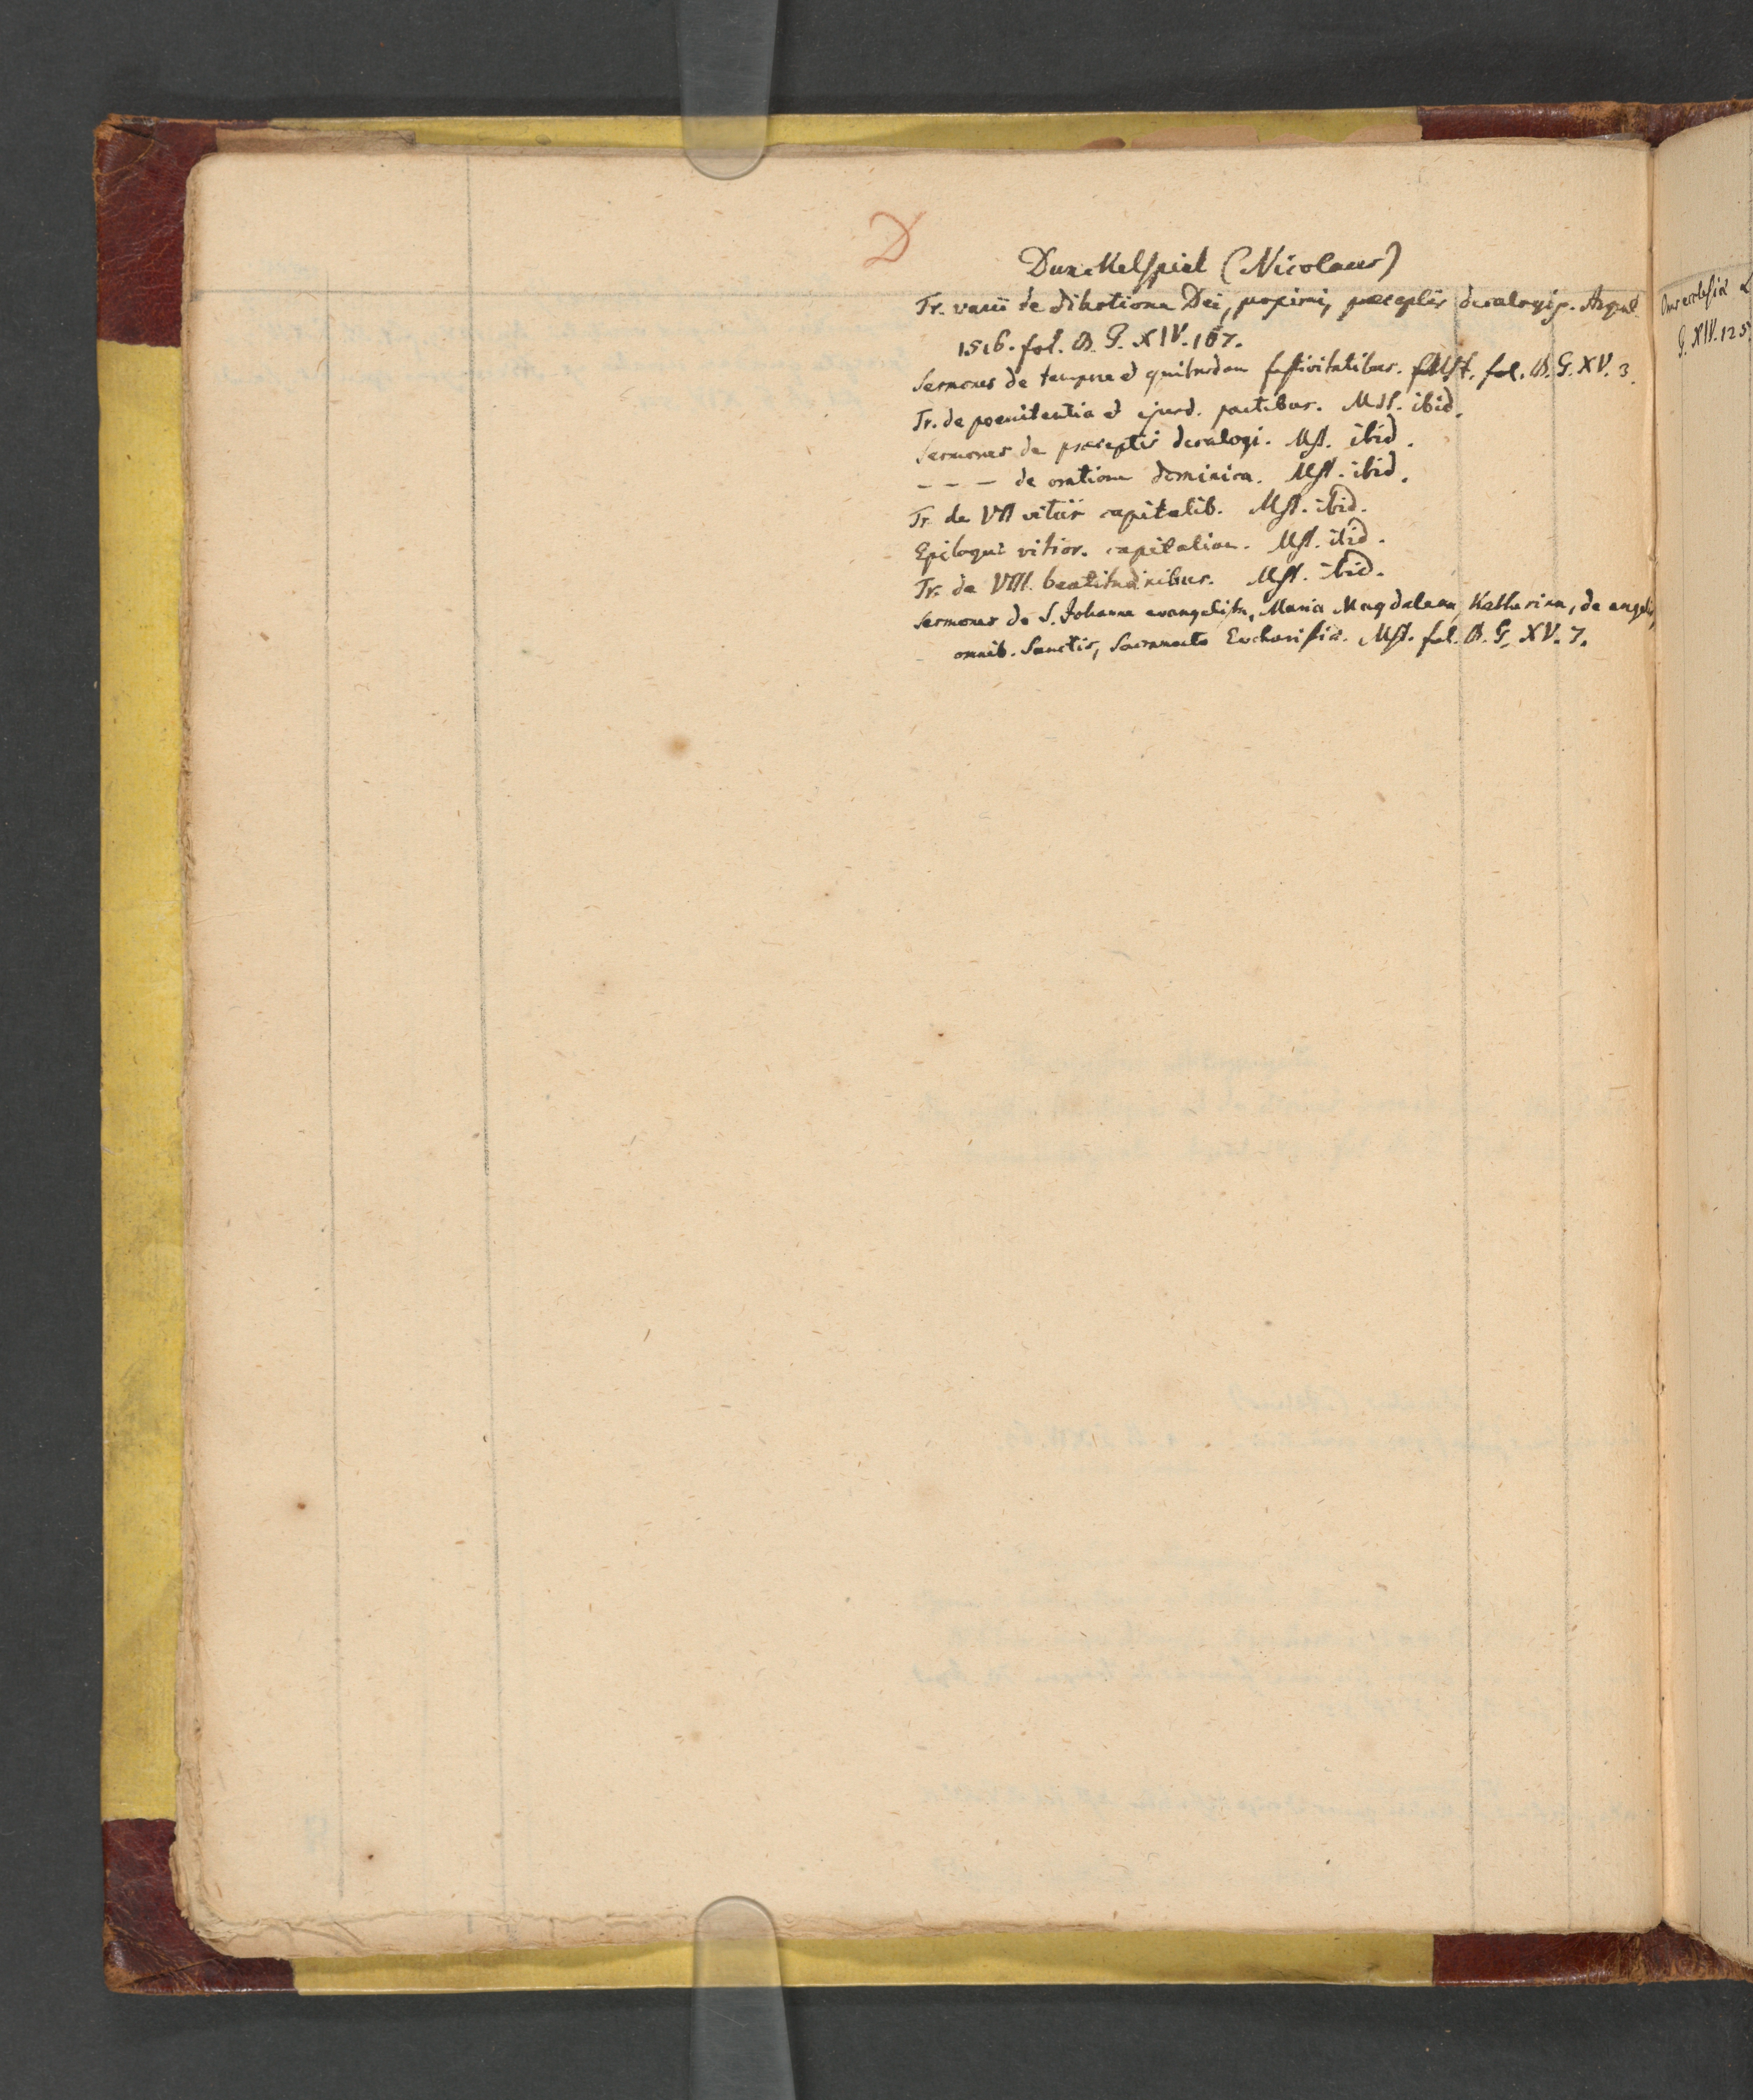 D
Dunckelspiel (Nicolaus)
Tr. varii de dilectione Dei, proximi, præceptis decalogi p. Argent.
1516. fol. B. G. XIV. 167.
Sermones de tempore et quibusdam festivitatibus. Mst. fol. B. G. XV. 3.
Tr. de poenitentia et ejusd. partibus. Mst. ibid.
Sermones de præceptis decalogi. Mst. ibid.
- - - de oratione dominica. Mst. ibid.
Tr. de VII vitiis capitalib. Mst. ibid.
Epilogus vitior. capitalium. Mst. ibid.
Tr. de VIII. beatitudinibus. Mst. ibid.
Sermones de S. Johanne evangelista, Maria Magdalena, Katharina, de angelis,
omnib. Sanctis, Sacramento Eucharistiæ. Mst. fol. B. G. XV. 7.
G. XIV. 125